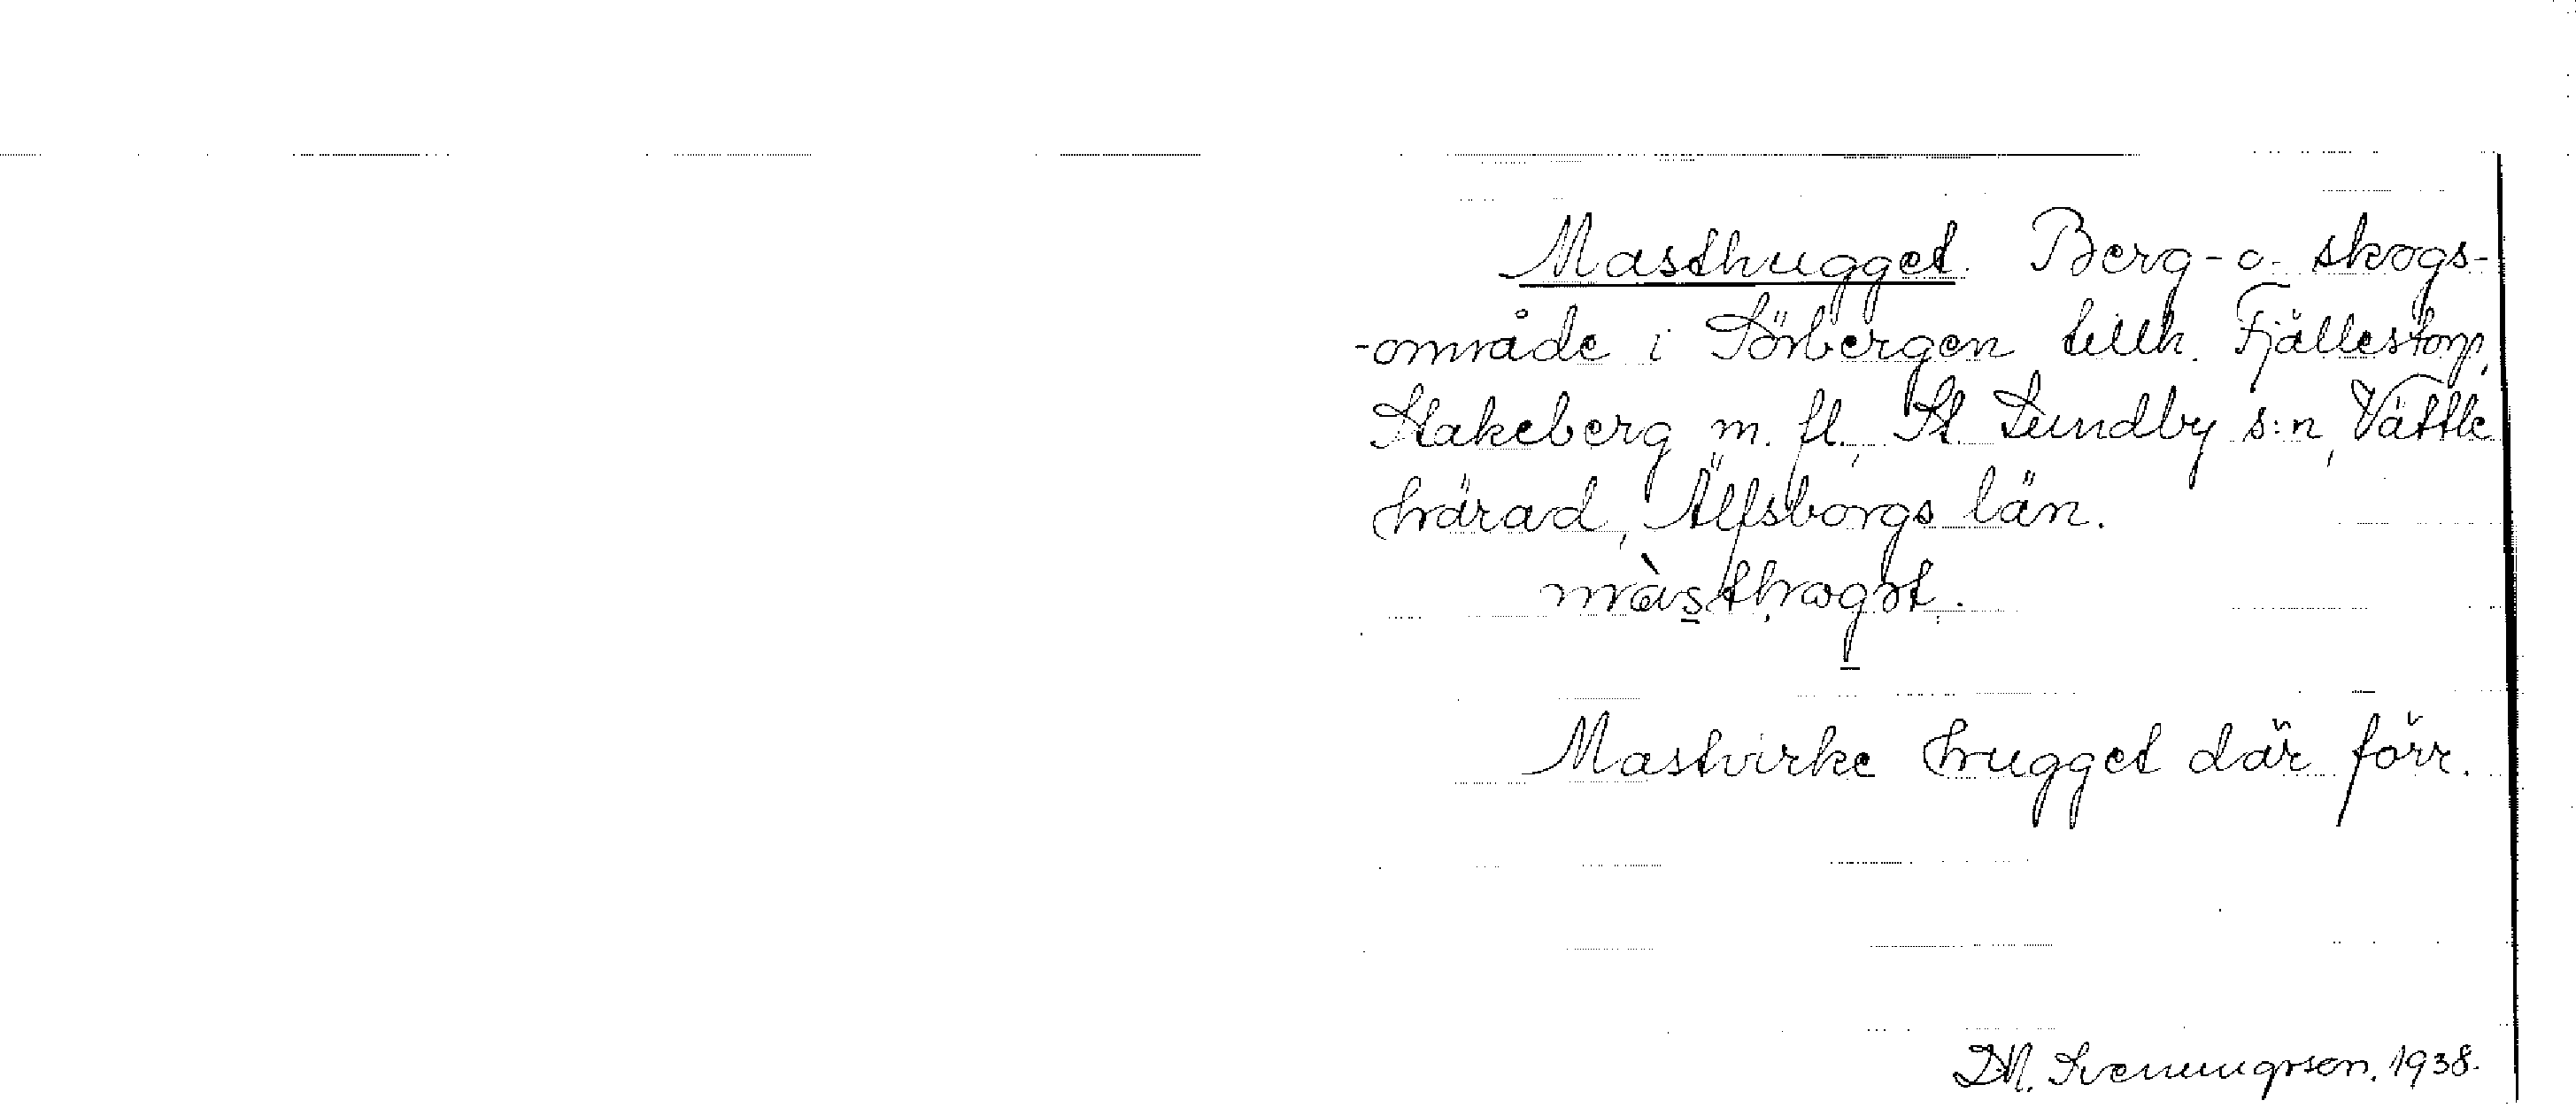 Masthugget. Berg- o. skogs-
-område i Sörbergen tillh. Fjällestorp,
Stakeberg m. fl., St. Lundby s:n, Vättle
härad, Älfsborgs län.
màsthogət.
Mastvirke hugget där förr.
1938.